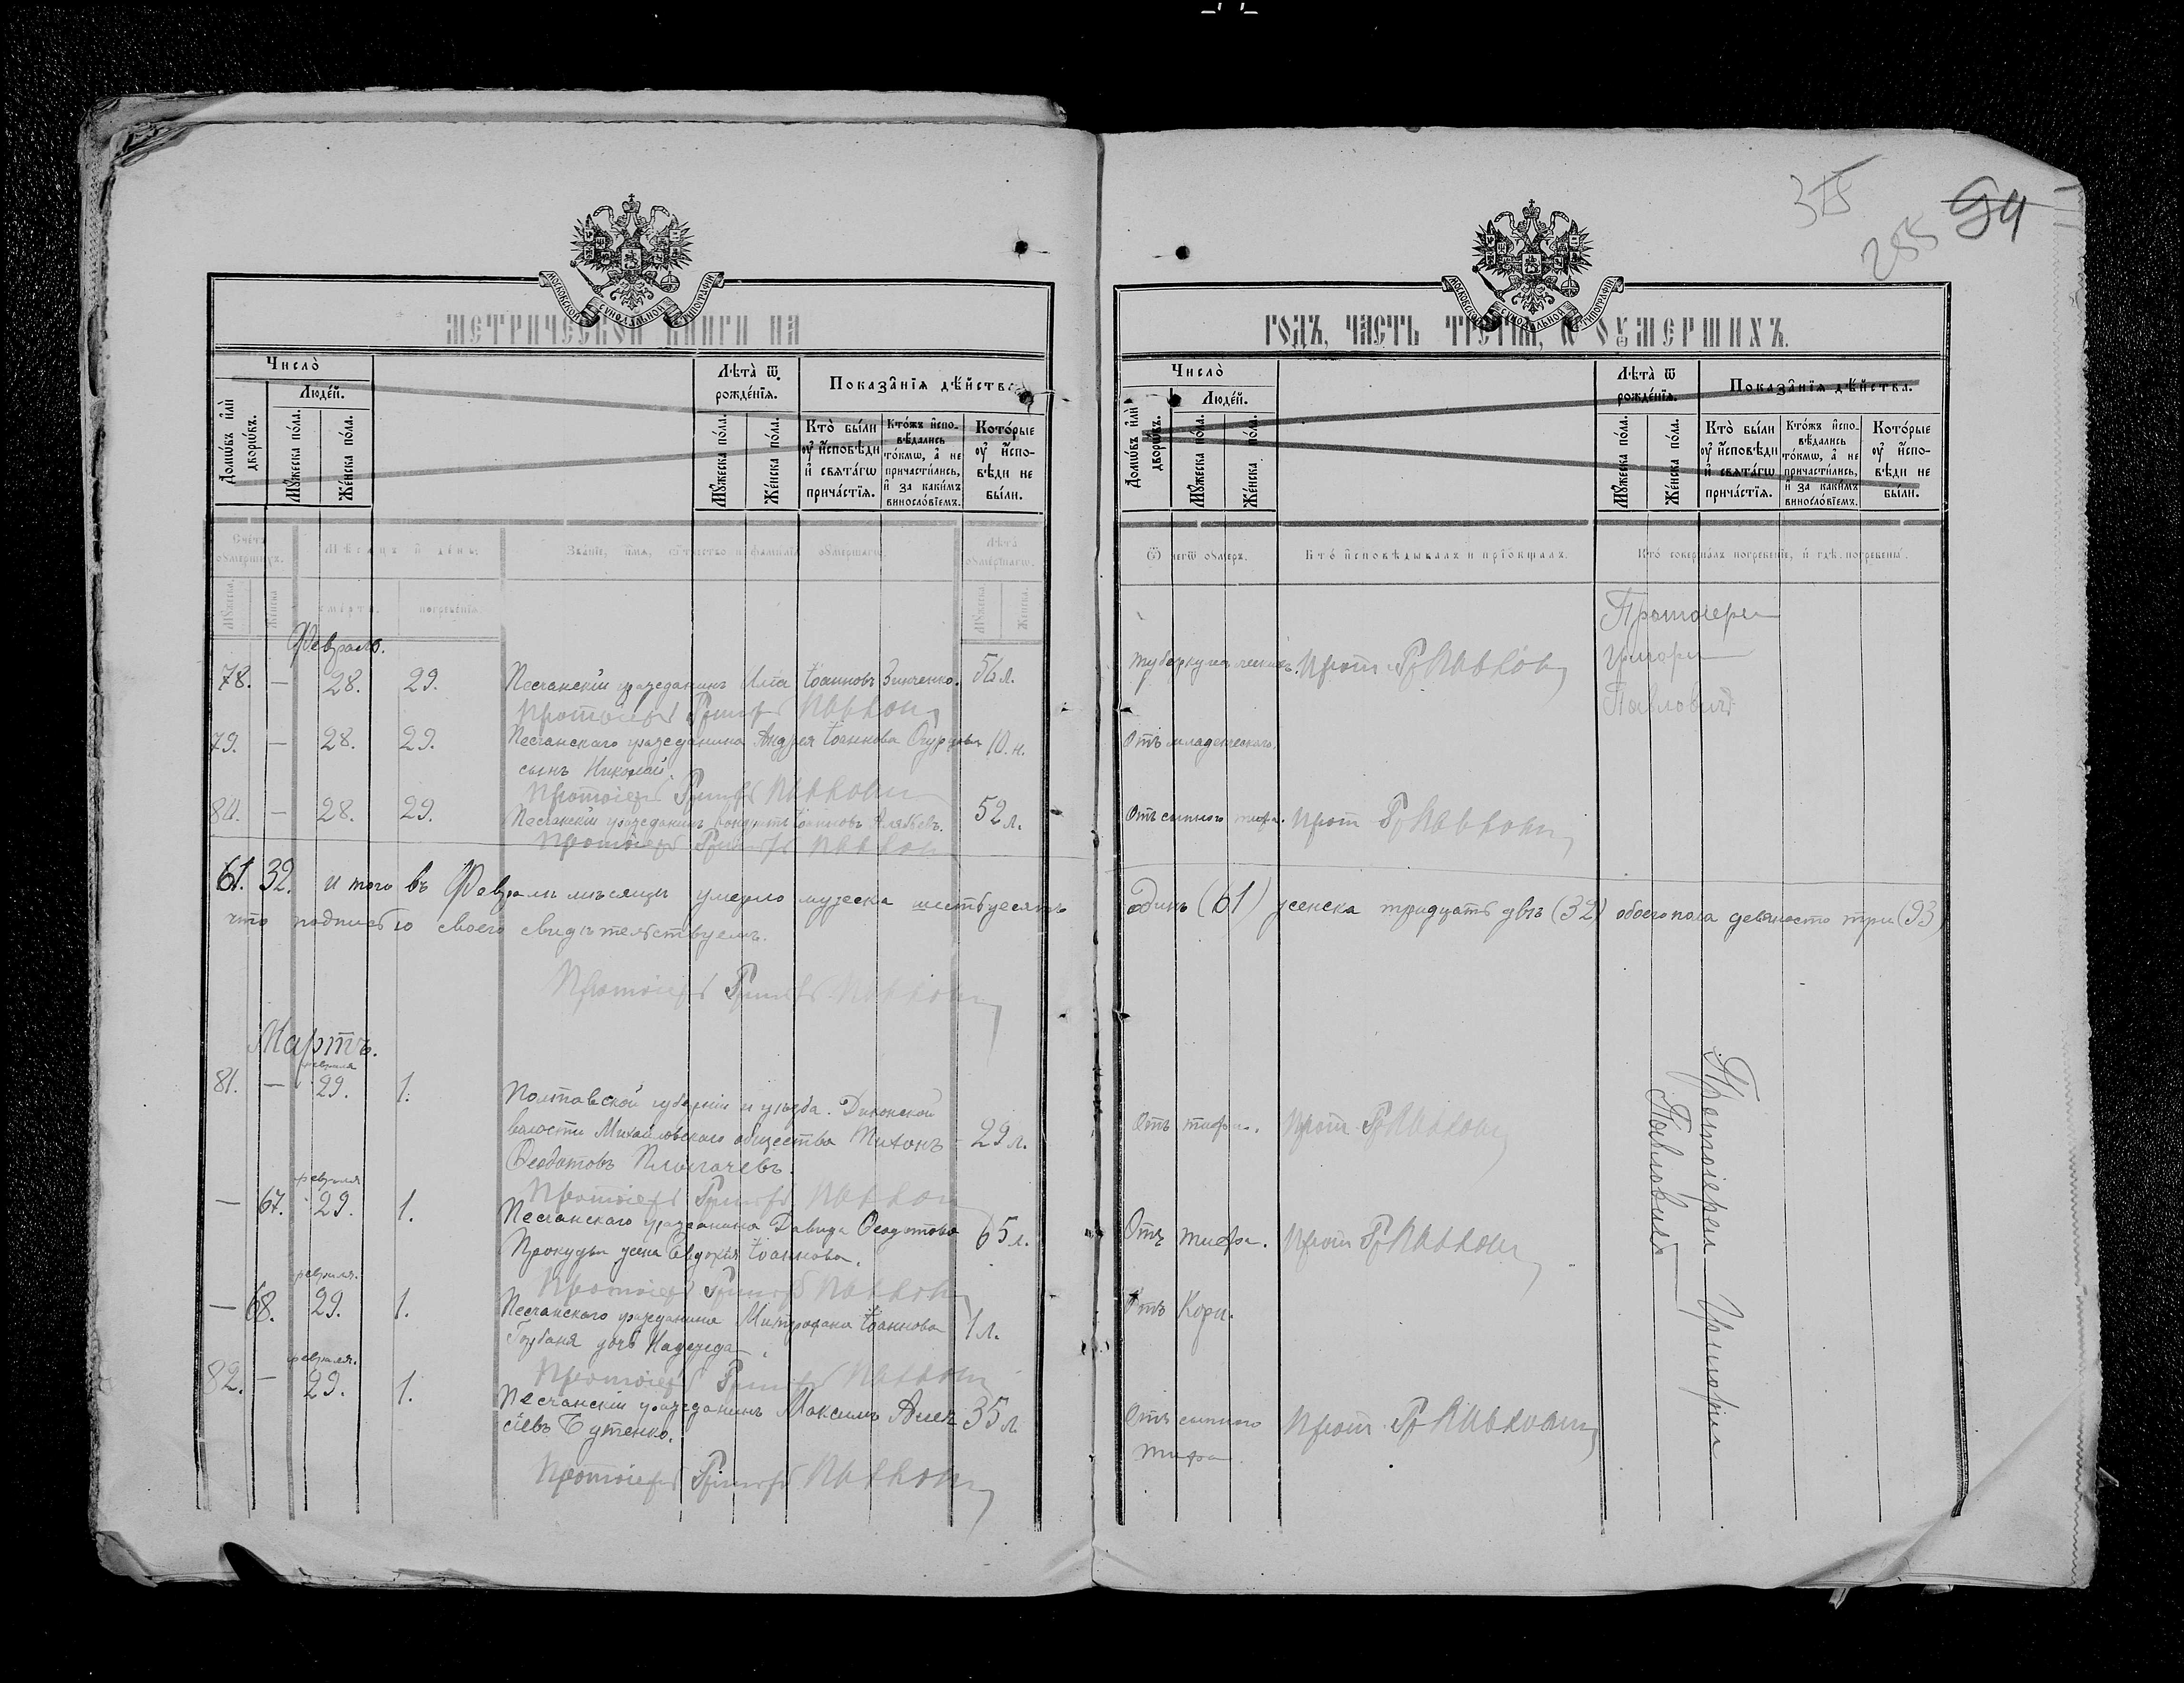 315
255
94
МОСКОВСКОЙ СѴНОДАЛЬНОЙ ТИПОГРАФІИ
МЕТРИЧЕСКОЙ КНИГИ НА
Число̀
Домѡ́въ и҆лѝ дворѡ́въ.
Люде́й.
Мꙋ́жеска по́ла.
Же́нска по́ла.
Лѣ́та ѿ рожде́нїѧ.
Мꙋ́жеска по́ла.
Же́нска по́ла.
Показа́нїѧ дѣ́йства
Кто̀ бы́ли ᲂу҆ и҆́сповѣди и҆ свѧта́гѡ прича́стїѧ.
Кто́жъ и҆спо-
вѣ́дались
то́кмѡ, а҆ не
причасти́лись,
и҆ за каки́мъ
винослов́їемъ.
Кото́рые
ᲂу҆ и҆́спо-
вѣди не
бы́ли.
Счетъ ᲂумершихъ.
Мꙋжеска
Женска
Мѣсяцъ и день.
смерти.
погребенїѧ.
Званїе, имя, ѿчество и фамилїѧ ᲂумершагѡ.
Лѣта ᲂумершагѡ.
Мꙋжеска.
Женска.
Февраль.
78. — 28. 29. Песчанскій гражданинъ Илія Іоанновъ Зинченко. 56 л.
Протоіерей Григорій Павлович
79. — 28. 29. Песчанскаго гражданина Андрея Іоаннова 10. н.
сынъ Николай.
Протоіерей Григорій Павлович
80. — 28. 29. Песчанскій гражданинъ Кондратъ Іоанновъ 52 л.
Протоіерей Григорій Павлович
61. 32. и того въ Февраль мѣсяцы умерло мужеска шестьдесятъ
что подписью своего свидѣтельствуемъ.
Протоіерей Григорій Павлович
Мартъ.
февраля
81. — 29. 1. Полтавской губерніи и уѣзда. Диканской
волости Михайловскаго общества 29 л.
Ѳеодотовъ
Протоіерей Григорій Павлович
февраля
— 67. 29. 1. Песчанскаго гражданина Давида Ѳеодотова 65 л.
Прокуды жена Евдокія Іоаннова.
Протоіерей Григорій Павлович
февраля.
— 68. 29. 1. Песчанскаго гражданина Митрофана Іоаннова 1 л.
Горбаня дочь Надежда.
Протоіерей Григорій Павлович
февраля.
82. — 29. 1. Песчанскій гражданинъ Максимъ Алек- 35 л.
сіевъ Бутенко.
Протоіерей Григорій Павлович
МОСКОВСКОЙ СѴНОДАЛЬНОЙ ТИПОГРАФІИ
ГОДЪ, ЧАСТЬ ТРЕТЇѦ, Ѡ ОУМЕРШИХЪ.
Число̀
Домѡ́въ и҆лѝ дворѡ́въ.
Люде́й.
Мꙋ́жеска по́ла.
Же́нска по́ла.
Лѣ́та ѿ рожде́нїѧ.
Мꙋ́жеска по́ла.
Же́нска по́ла.
Показа́нїѧ дѣ́йства.
Кто̀ бы́ли ᲂу҆ и҆́сповѣди и҆ свѧта́гѡ прича́стїѧ.
Кто́жъ и҆спо-
вѣ́дались
то́кмѡ, а҆ не
причасти́лись,
и҆ за каки́мъ
винослов́їемъ.
Кото́рые
ᲂу҆ и҆́спо-
вѣди не
бы́ли.
Ѿ чегѡ ᲂумеръ.
Кто исповѣдывалъ и прїобщалъ.
Кто совершалъ погребенїе, и гдѣ погребены.
Протоіерей
Григорій
Павловичъ
Прот. Гр Павлович
Отъ младенческаго.
Отъ сыпного тифа. Прот Гр Павлович
одинъ (61) женска тридцать двѣ (32) обоего пола девяносто три (93)
Отъ тифа. Прот Гр Павлович
Отъ тифа. Прот Гр Павлович
Отъ Кори.
Отъ сыпного Прот Гр Павлович
тифа.
Протоіерей Григорій
Павловичъ